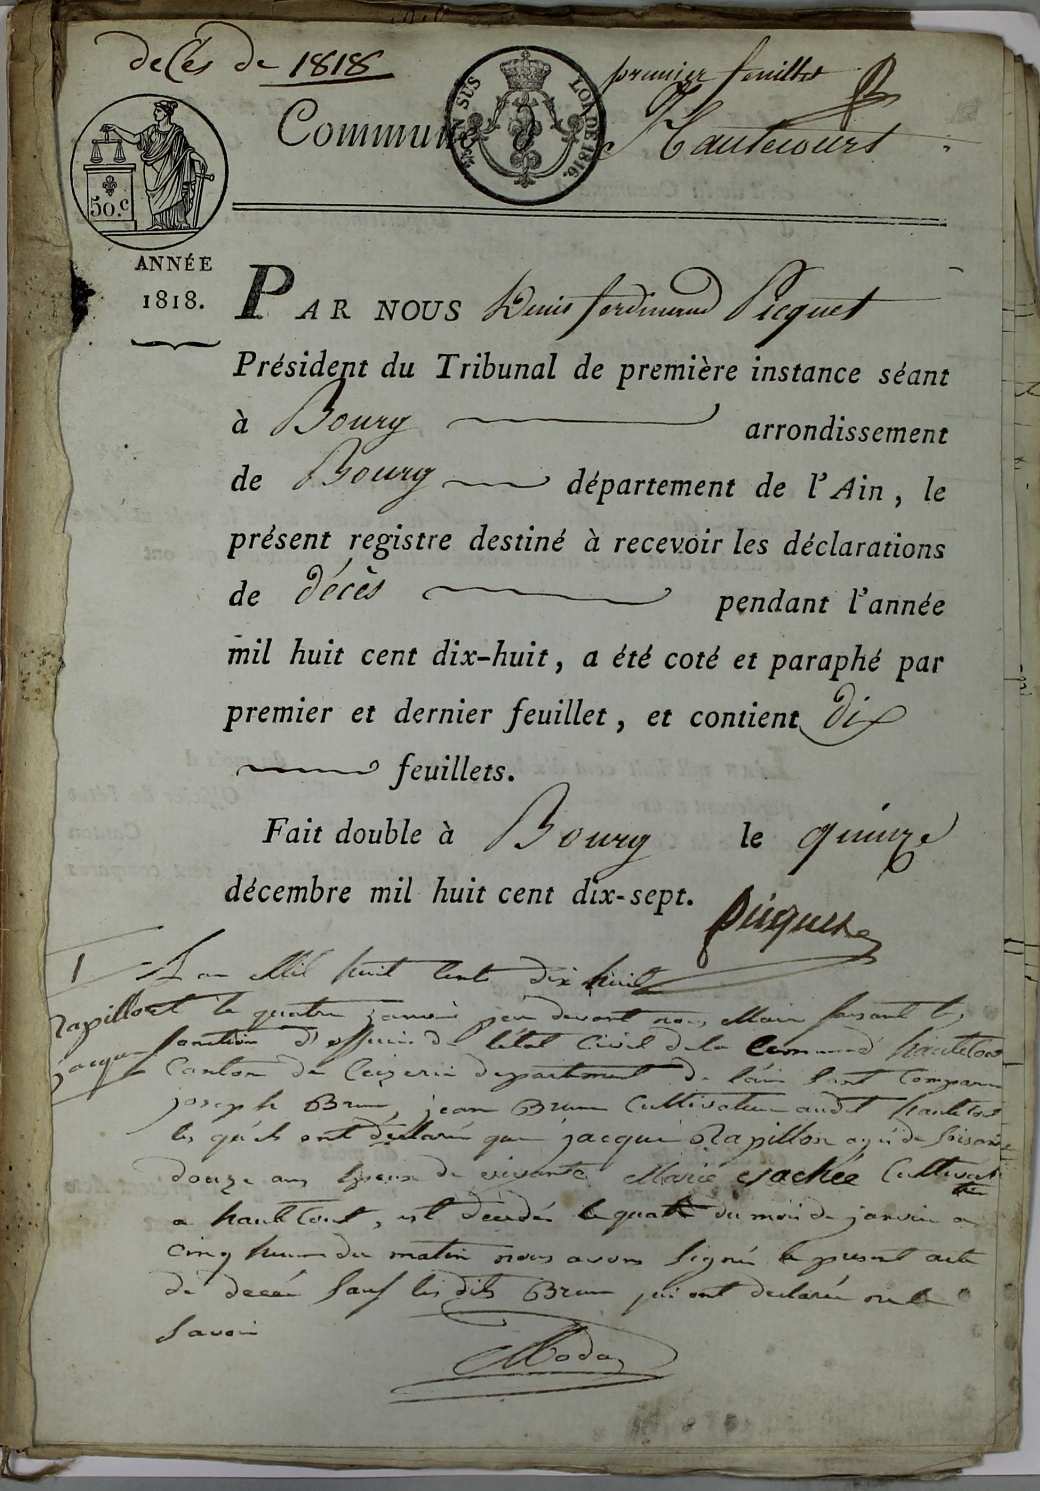 deces de 1818
premier feuillet
Commune d Hautecourt
EN SUS
LOI DE 1816.
50.c
ANNÉE
1818.
PAR NOUS Denis ferdinand Picquet
Président du Tribunal de première instance séant
à Bourg arrondissement
de Bourg département de l'Ain, le
présent registre destiné à recevoir les déclarations
de décès pendant l'année
mil huit cent dix-huit, a été coté et paraphé par
premier et dernier feuillet, et contient dix
feuillets.
Fait double à Bourg le quinze
décembre mil huit cent dix-sept.
Picquet
1
L'an Mil huit cent dix huit
Papillon
jacque
et le quatre janvier par devant nous Maire faisant les
fonction d'officier de l'état Civil de la Commune d hautecour
Canton de Ceizeria departement de l'ain sont Comparu
joseph Brun, jean Brun Cultivateur audit hautecour
les quels ont déclaré que jacque Papillon agé de soisante
douze ans Epoux de vivante Marie Cultivateur
a hautecourt, est décédé le quatre du mois de janvier a
cinq heure du matin nous avons signé le present acte
de décés sauf les dits Brun qui ont declaré ne le
savoir
Moda